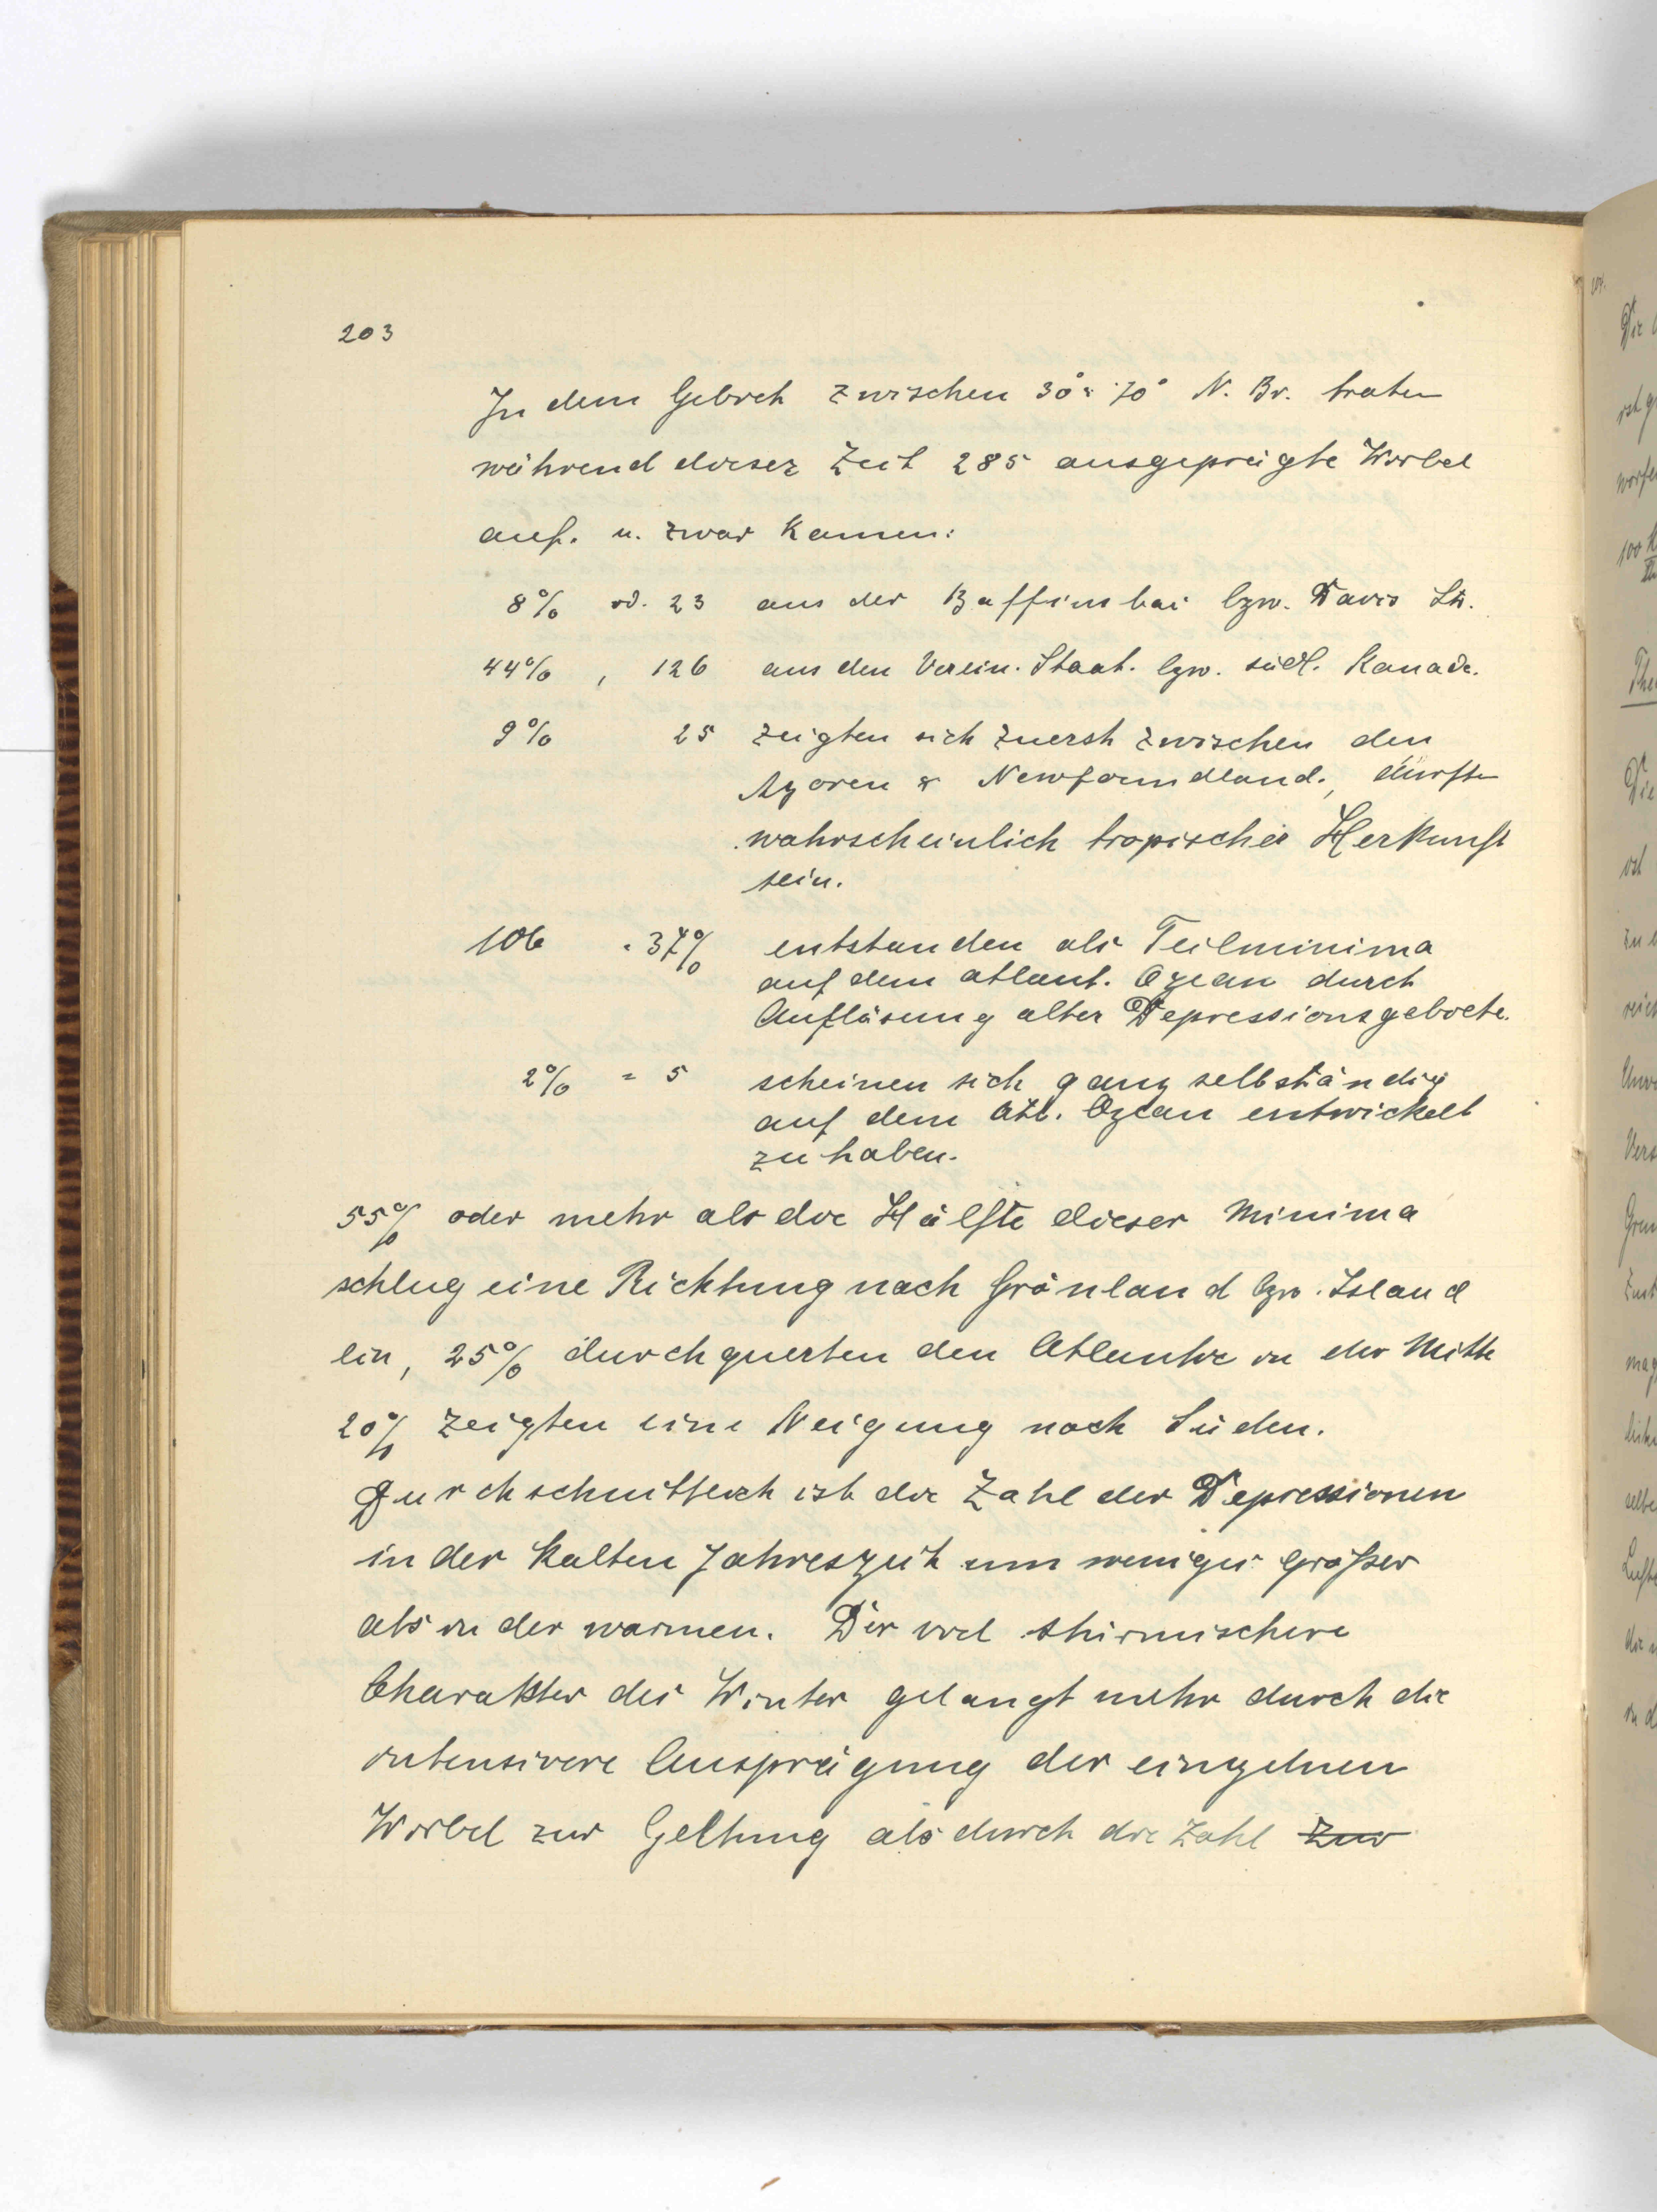 203
In dem Gebiet zwischen 30° & 70° N. Br. traten
während dieser Zeit 285 ausgeprägte Wirbel
auf. u. zwar kamen:
8% od. 23 aus der Baffinsbai bzw. Davis Str.
44% , 126 aus den Verein. Staat. bzw. südl. Kanada.
9% 25 zeigten sich zuerst zwischen den
Azoren & Newfoundland., dürften
wahrscheinlich tropischer Herkunft
sein.
106 = 37% entstanden als Teilminima
auf dem atlant. Ozean durch
Auflösung alter Depressionsgebiete.
2% = 5 scheinen sich ganz selbständig
auf dem Atl. Ozean entwickelt
zu haben.
55% oder mehr als die Hälfte dieser Minima
schlug eine Richtung nach Grönland bzw. Island
ein, 25% durchquerten den Atlantic in der Mitte
20% zeigten eine Neigung nach Süden.
Durchschnittlich ist die Zahl der Depressionen
in der kalten Jahreszeit um weniges größer
als in der warmen. Der viel stürmischere
Charakter des Winter gelangt mehr durch die
intensivere Ausprägung der einzelnen
Wirbel zur Geltung als durch die Zahl zur